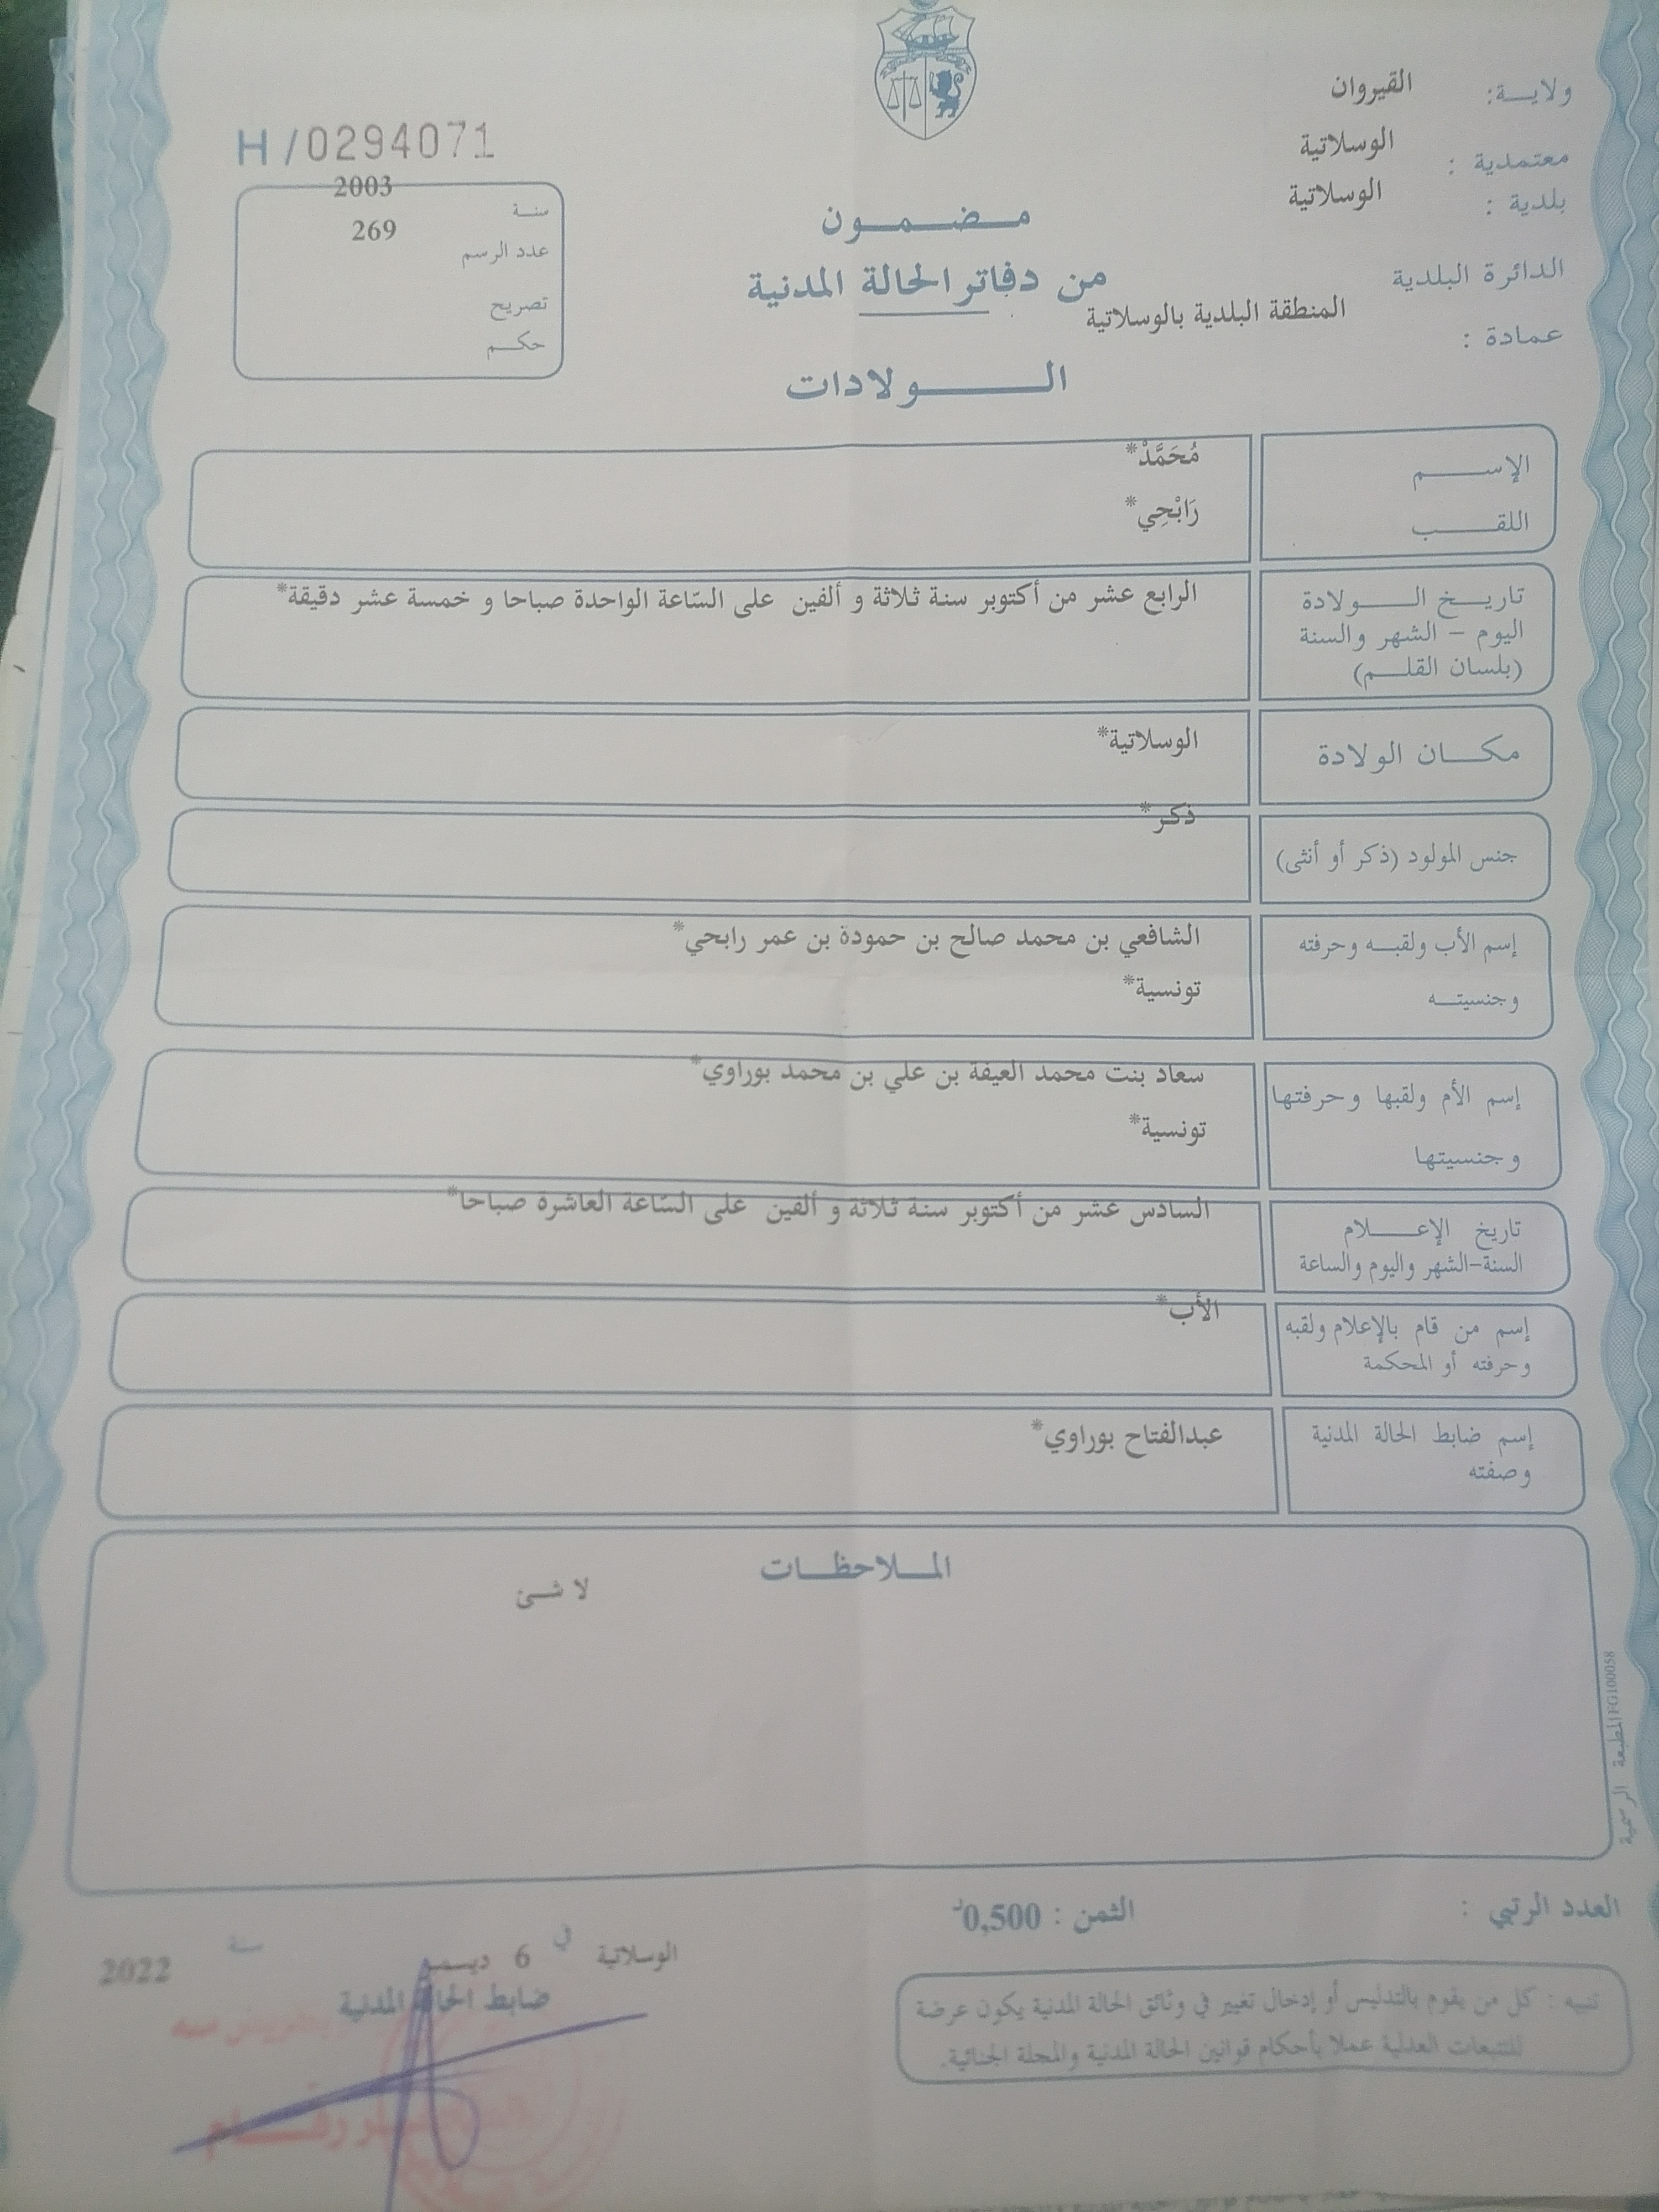 ولايـــة: القيروان
معتمدية : الوسلاتية
بلدية : الوسلاتية
الدائرة البلدية
المنطقة البلدية بالوسلاتية
عمادة :
H/0294071
سنـة 2003
عدد الرسم 269
تصريح
حكـم
مـضـمـون
من دفاتر الحالة المدنية
الـولادات
الإســـم مُحَمَّدْ*
اللقـــب رَابْحِي*
تاريـخ الـــولادة الرابع عشر من أكتوبر سنة ثلاثة و ألفين على السّاعة الواحدة صباحا و خمسة عشر دقيقة*
اليوم – الشهر والسنة
(بلسان القلـــم)
مكـــان الولادة الوسلاتية*
جنس المولود (ذكر أو أنثى) ذكر*
إسم الأب ولقبـــه وحرفته الشافعي بن محمد صالح بن حمودة بن عمر رابحي*
وجنسيتـــه تونسية*
إسم الأم ولقبها وحرفتها سعاد بنت محمد العيفة بن علي بن محمد بوراوي*
وجنسيتها تونسية*
تاريخ الإعـــلام السادس عشر من أكتوبر سنة ثلاثة و ألفين على السّاعة العاشرة صباحا*
السنة–الشهر واليوم والساعة
إسم من قام بالإعلام ولقبه الأب*
وحرفته أو المحكمة
إسم ضابط الحالة المدنية عبدالفتاح بوراوي*
وصفته
المـلاحظـات
لا شئ
المطبعة الرسمية FG100058
العدد الرتبي :
الثمن : 0,500د
الوسلاتية في 6 ديسمبر سنة 2022
ضابط الحالة المدنية
تنبيه : كل من يقوم بالتدليس أو إدخال تغيير في وثائق الحالة المدنية يكون عرضة
للتتبعات العدلية عملا بأحكام قوانين الحالة المدنية والمجلة الجنائية.